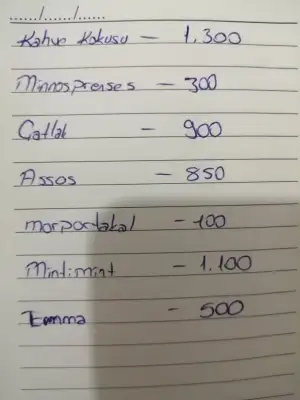 ....../....../......
Kahve Kokusu - 1.300
Minnosprenses - 300
Catlak - 900
Assos - 850
morportakal - 100
Mintimint - 1.100
Emma - 500